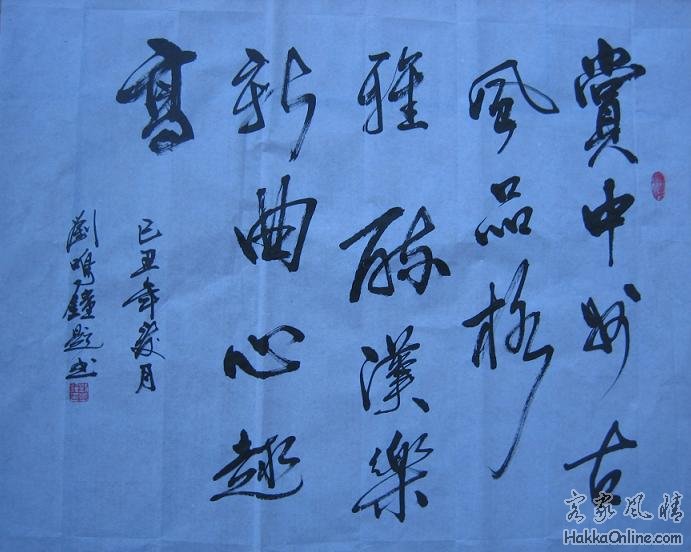 賞中州古
風品格
雅 漢樂
新曲心趣
高
己丑年月
劉鳴鐘題書
客家風情
HakkaOnline.com